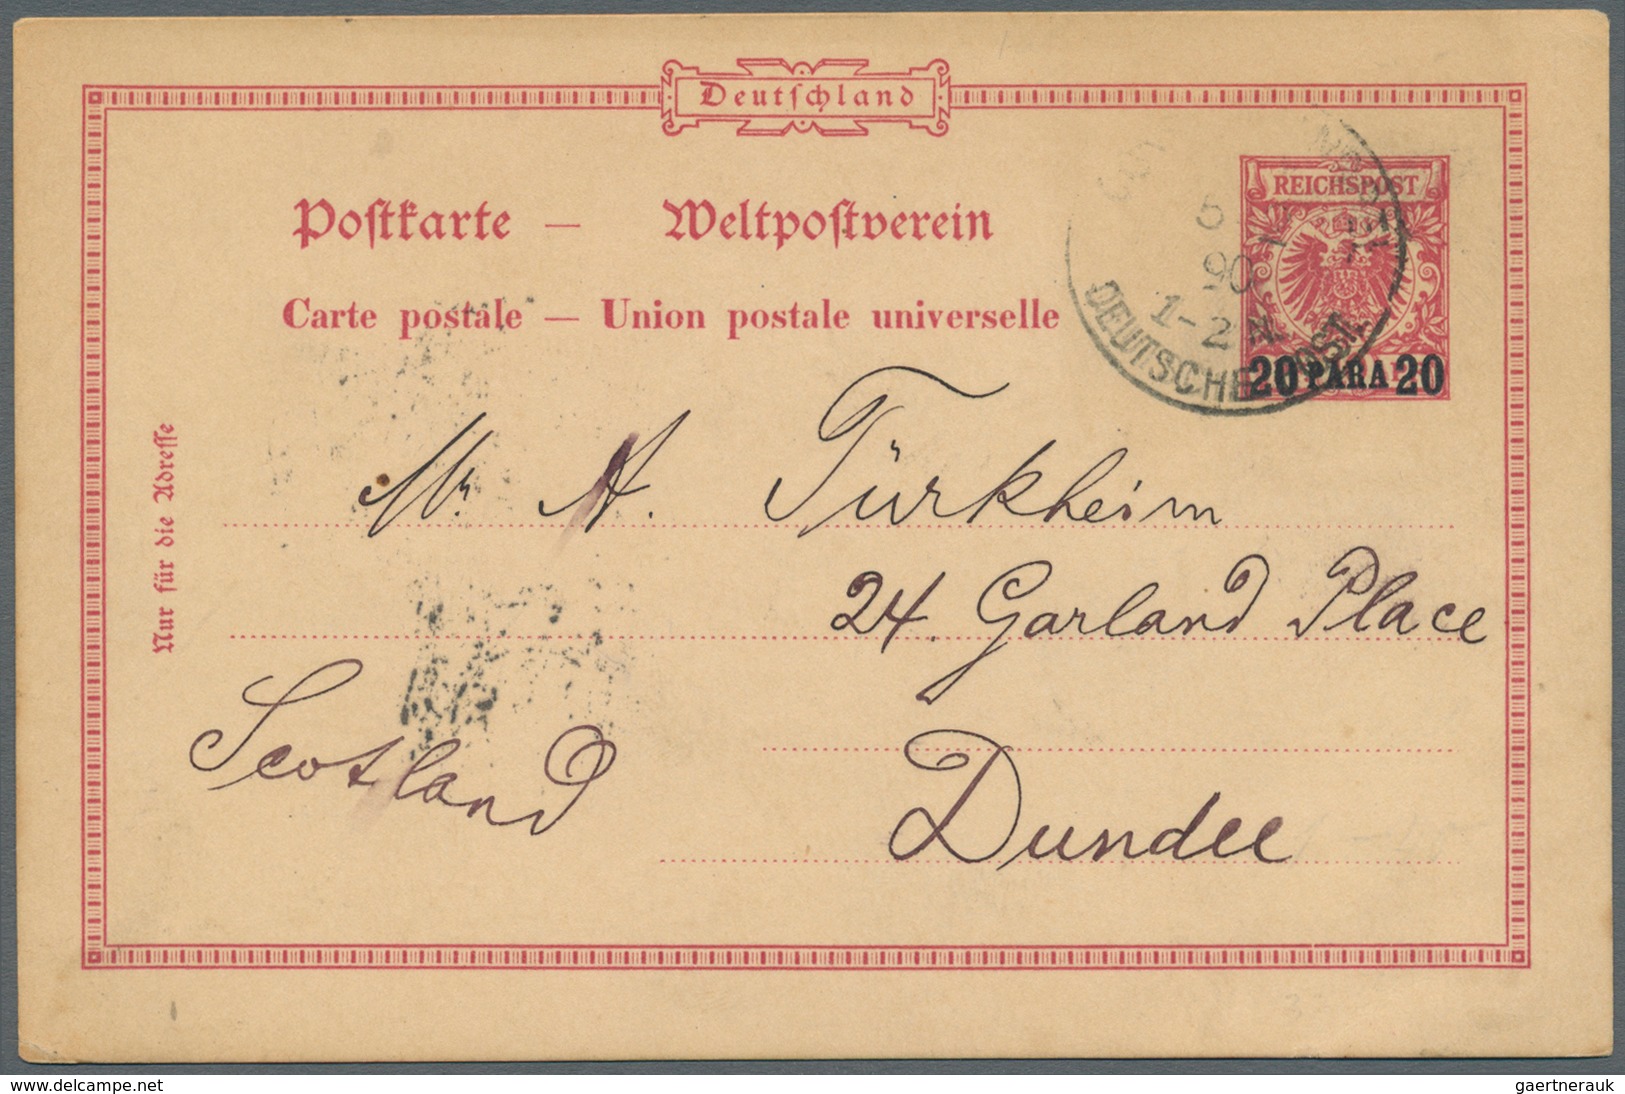 Deutſchland
REICHSPOST
Poſtkarte — Weltpoſtverein
Carte postale — Union postale universelle
5
90
1-2N.
DEUTSCHE POST
20 PARA 20
Nur für die Adreſſe
Mr. A. Türkheim
24. Garland Place
Scotland
Dundee
www.delcampe.net
gaertnerauk